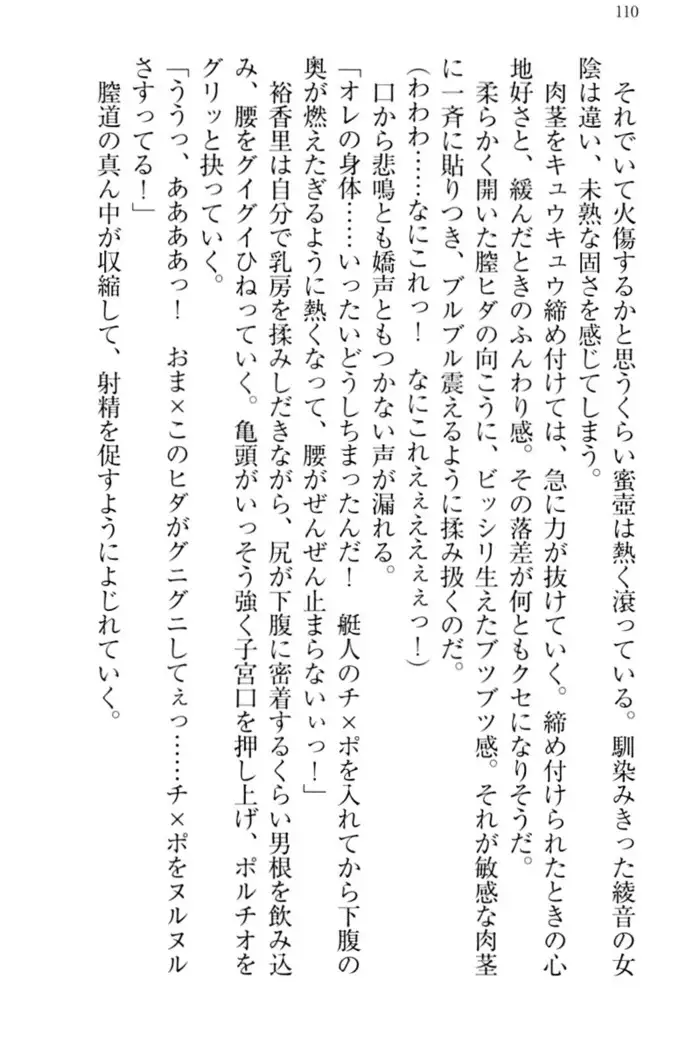 110
それでいて火傷するかと思うくらい蜜壺は熱く滾っている。馴染みきった綾音の女
陰は違い、未熟な固さを感じてしまう。
肉茎をキュウキュウ締め付けては、急に力が抜けていく。締め付けられたときの心
地好さと、緩んだときのふんわり感。その落差が何ともクセになりそうだ。
柔らかく開いた膣ヒダの向こうに、ビッシリ生えたブツブツ感。それが敏感な肉茎
に一斉に貼りつき、ブルブル震えるように揉み扱くのだ。
(わわわ……なにこれっ！　なにこれえぇえぇぇっ！)
口から悲鳴とも嬌声ともつかない声が漏れる。
「オレの身体……いったいどうしちまったんだ！　艇人のチ×ポを入れてから下腹の
奥が燃えたぎるように熱くなって、腰がぜんぜん止まらないぃっ！」
裕香里は自分で乳房を揉みしだきながら、尻が下腹に密着するくらい男根を飲み込
み、腰をグイグイひねっていく。亀頭がいっそう強く子宮口を押し上げ、ポルチオを
グリッと抉っていく。
「ううっ、ああああっ！　おま×このヒダがグニグニしてぇっ……チ×ポをヌルヌル
さすってる！」
膣道の真ん中が収縮して、射精を促すようによじれていく。